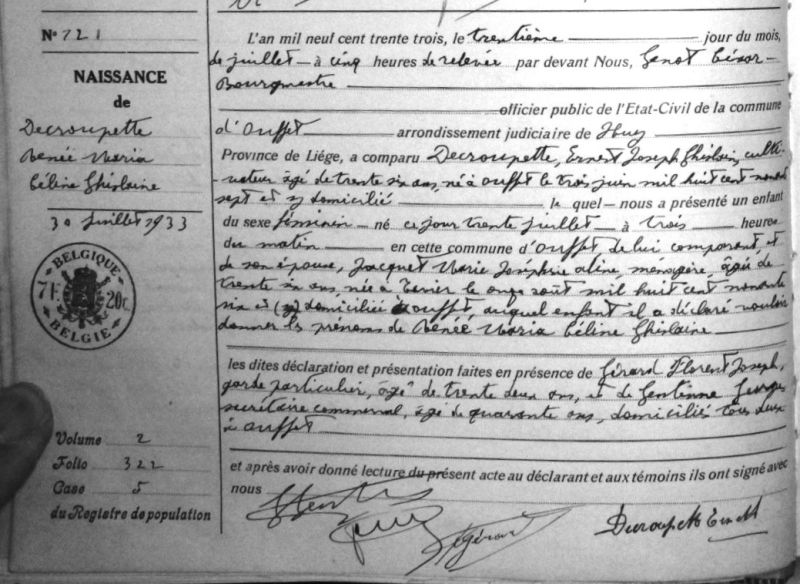 N° 121
NAISSANCE
de
Decroupette
Renée Maria
Céline Ghislaine
30 juillet 1933
BELGIQUE
7 F. 20 c.
BELGIE
Volume 2
Folio 322
Case 5
du Registre de population
L'an mil neuf cent trente trois, le trentième jour du mois,
de juillet à cinq heures de relevée par devant Nous, Genot César
Bourgmestre
officier public de l'Etat-Civil de la commune
d'Ouffet arrondissement judiciaire de Huy
Province de Liége, a comparu Decroupette, Ernest Joseph Ghislain, culti-
-vateur âgé de trente six ans, né à Ouffet le trois juin mil huit cent nonante
sept et y domicilié le quel – nous a présenté un enfant
du sexe féminin – né ce jour trente juillet à trois heures
du matin en cette commune d'Ouffet, de lui comparant et
de son épouse, Jacquet Marie Joséphine Aline, ménagère, âgée de
trente six ans née à le onze août mil huit cent nonante
six et (y) domiciliée Ouffet, auquel enfant il a déclaré vouloir
donner les prénoms de Renée Maria Céline Ghislaine
les dites déclaration et présentation faites en présence de Gérard Florent Joseph,
garde particulier, âgé de trente deux ans, et de Gentinne Georges
secrétaire communal, âgé de quarante ans, domiciliés tous deux
à Ouffet
et après avoir donné lecture du présent acte au déclarant et aux témoins ils ont signé avec
nous
Gérard
Decroupette Ernest